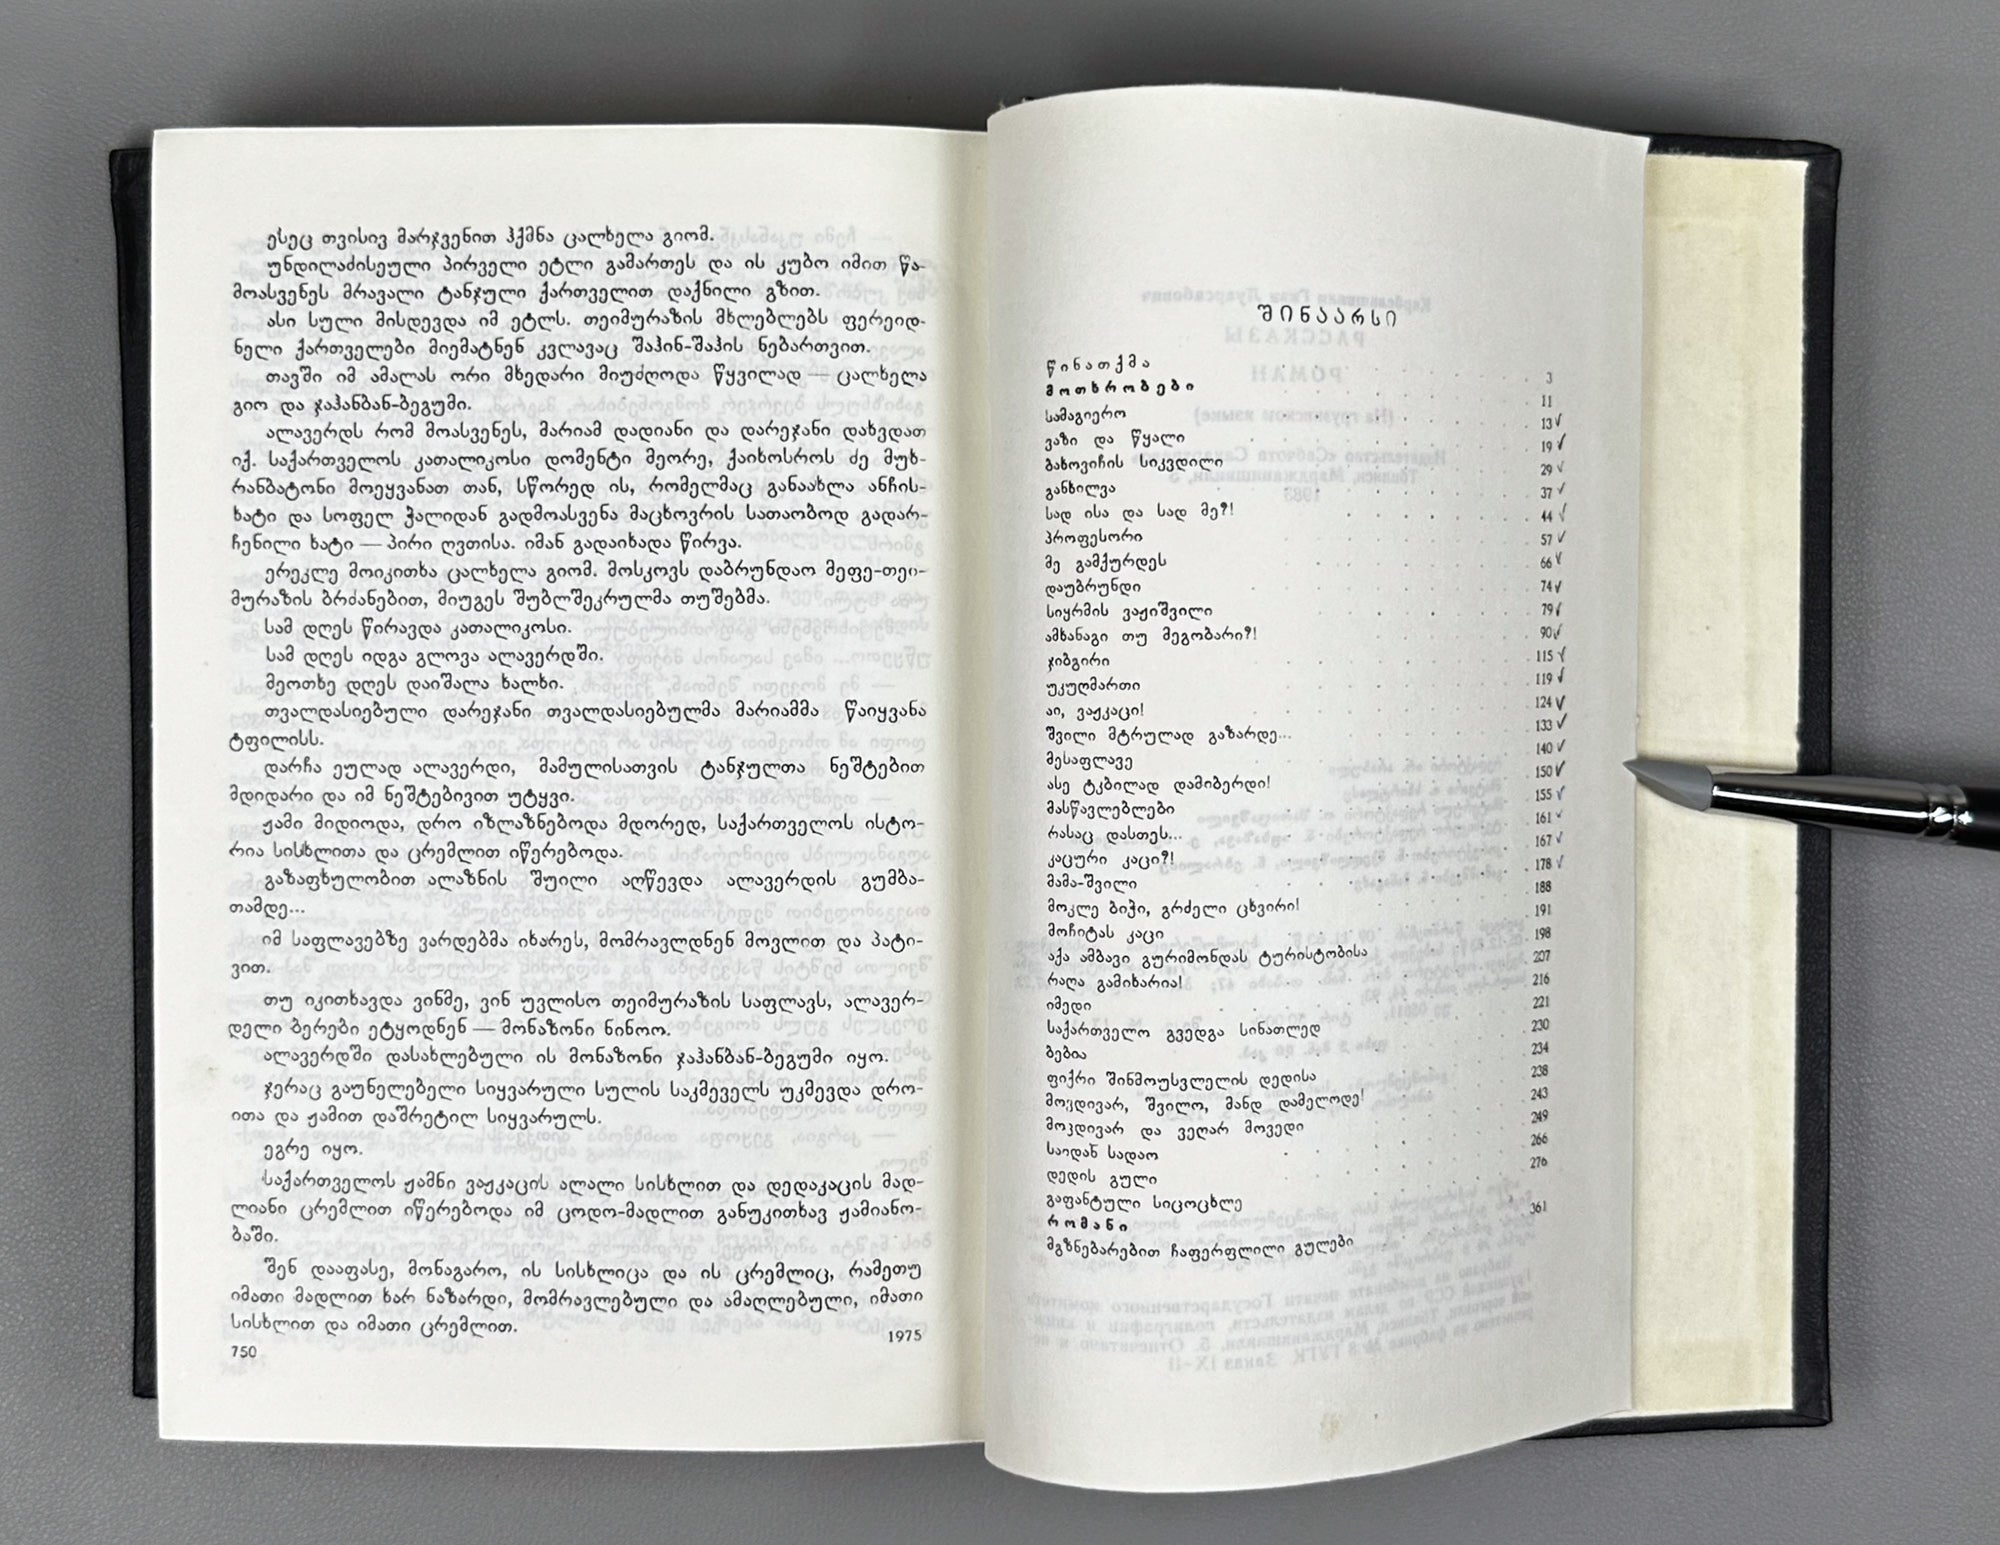 ესეც თვისივ მარჯვენით ჰქმნა ცალხელა გიომ.
უნდილაძისეული პირველი ეტლი გამართეს და ის კუბო იმით წა-
მოასვენეს მრავალი ტანჯული ქართველით დაქნილი გზით.
ასი სული მისდევდა იმ ეტლს. თეიმურაზის მხლებლებს ფერეიდ-
ნელი ქართველები მიემატნენ კვლავაც შაჰინ-შაჰის ნებართვით.
თავში იმ ამალას ორი მხედარი მიუძღოდა წყვილად — ცალხელა
გიო და ჯაჰანბან-ბეგუმი.
ალავერდს რომ მოასვენეს, მარიამ დადიანი და დარეჯანი დახვდათ
იქ. საქართველოს კათალიკოსი დომენტი მეორე, ქაიხოსროს ძე მუხ-
რანბატონი მოეყვანათ თან, სწორედ ის, რომელმაც განაახლა ანჩის-
ხატი და სოფელ ჭალიდან გადმოასვენა მაცხოვრის სათაობოდ გადარ-
ჩენილი ხატი — პირი ღვთისა. იმან გადაიხადა წირვა.
ერეკლე მოიკითხა ცალხელა გიომ. მოსკოვს დაბრუნდაო მეფე-თეი-
მურაზის ბრძანებით, მიუგეს შუბლშეკრულმა თუშებმა.
სამ დღეს წირავდა კათალიკოსი.
სამ დღეს იდგა გლოვა ალავერდში.
მეოთხე დღეს დაიშალა ხალხი.
თვალდასიებული დარეჯანი თვალდასიებულმა მარიამმა წაიყვანა
ტფილისს.
დარჩა ეულად ალავერდი, მამულისათვის ტანჯულთა ნეშტებით
მდიდარი და იმ ნეშტებივით უტყვი.
ჟამი მიდიოდა, დრო იზლაზნებოდა მდორედ, საქართველოს ისტო-
რია სისხლითა და ცრემლით იწერებოდა.
გაზაფხულობით ალაზნის შუილი აღწევდა ალავერდის გუმბა-
თამდე...
იმ საფლავებზე ვარდებმა იხარეს, მომრავლდნენ მოვლით და პატი-
ვით.
თუ იკითხავდა ვინმე, ვინ უვლისო თეიმურაზის საფლავს, ალავერ-
დელი ბერები ეტყოდნენ — მონაზონი ნინოო.
ალავერდში დასახლებული ის მონაზონი ჯაჰანბან-ბეგუმი იყო.
ჯერაც გაუნელებელი სიყვარული სულის საკმეველს უკმევდა დრო-
ითა და ჟამით დაშრეტილ სიყვარულს.
ეგრე იყო.
საქართველოს ჟამნი ვაჟკაცის ალალი სისხლით და დედაკაცის მად-
ლიანი ცრემლით იწერებოდა იმ ცოდო-მადლით განუკითხავ ჟამიანო-
ბაში.
შენ დააფასე, მონაგარო, ის სისხლიცა და ის ცრემლიც, რამეთუ
იმათი მადლით ხარ ნაზარდი, მომრავლებული და ამაღლებული, იმათი
სისხლით და იმათი ცრემლით.
1975
750
შინაარსი
წინათქმა 3
მოთხრობები 11
სამაგიერო 13
ვაზი და წყალი 19
ბახოვიჩის სიკვდილი 29
განხილვა 37
სად ისა და სად მე?! 44
პროფესორი 57
მე გამქურდეს 66
დაუბრუნდი 74
სიყრმის ვაჟიშვილი 79
ამხანაგი თუ მეგობარი?! 90
ჯიბგირი 115
უკუღმართი 119
აი, ვაჟკაცი! 124
შვილი მტრულად გაზარდე... 133
მესაფლავე 140
ასე ტკბილად დამიბერდი! 150
მასწავლებლები 155
რასაც დასთეს... 161
კაცური კაცი?! 167
მამა-შვილი 178
მოკლე ბიჭი, გრძელი ცხვირი! 188
მოჩიტას კაცი 191
აქა ამბავი გურიმონდას ტურისტობისა 198
რაღა გამიხარია! 207
იმედი 216
საქართველო გვედგა სინათლედ 221
ბებია 230
ფიქრი შინმოუსვლელის დედისა 234
მოვდივარ, შვილო, მანდ დამელოდე! 238
მოვდივარ და ვეღარ მოვედი 243
საიდან სადაო 249
დედის გული 266
გაფანტული სიცოცხლე 276
რომანი
მგზნებარებით ჩაფერფლილი გულები 361